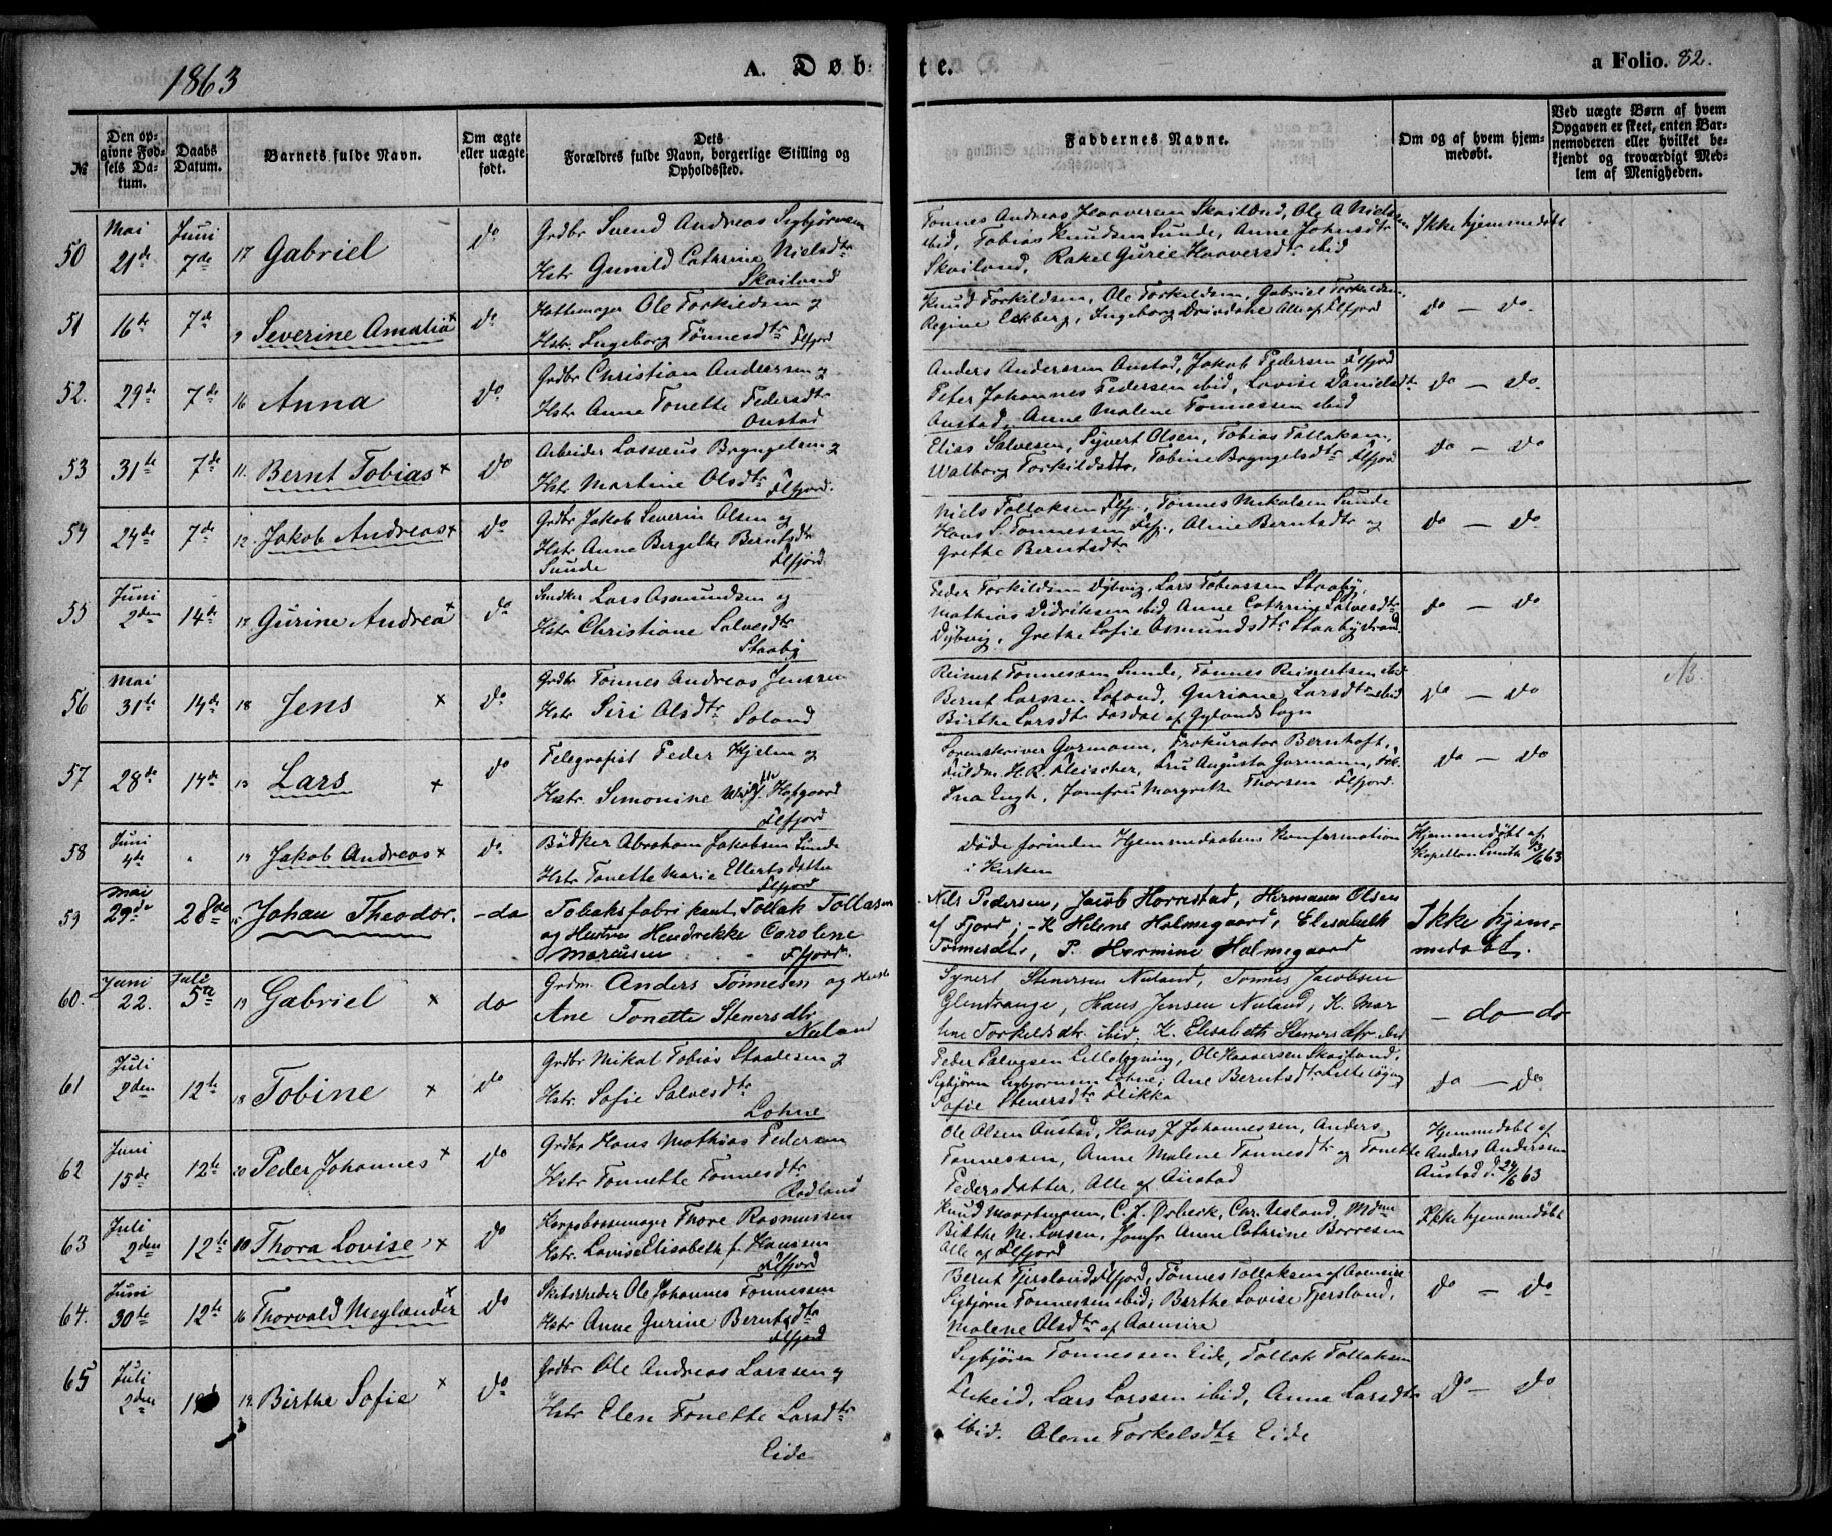 1863
A. Døbte.
a Folio. 82.
№
Den opgivne Fødsels Datum.
Daabs Datum.
Barnets fulde Navn.
Om ægte eller uægte født.
Dets Forældres fulde Navn, borgerlige Stilling og Opholdsted.
Faddernes Navne.
Om og af hvem hjemmedøbt.
Ved uægte Børn af hvem Opgaven er skeet, enten Barnemoderen eller hvilket bekjendt og troværdigt Medlem af Menigheden.
50 Mai 21de Juni 7de 17 Gabriel do
Grdbr Svend Andreas Sigbjørnsen
Hstr Gunild Cathrine Nielsdtr
Skailand
Tønnes Andreas Haaversen Skailand, Ole A Nielsen
ibid, Tobias Knudsen Sunde, Anne Johnsdtr
Skailand, Rakel Gurie Haaversdtr ibid
Ikke hjemmedøbt
51 16de 7de 9 Severine Amalia x do
Hattemager Ole Torkildsen og
Hstr. Ingeborg Tønnesdtr Flfjord
Knud Torkildsen, Ole Torkildsen, Gabriel Torkildsen,
Regine Eckberg, Ingeborg Drivdahl Alle af Flfjord
do — do.
52. 29de 7de 16 Anna do
Grdbr Christian Anderssen og
Hstr Anne Tonette Pedersdtr
Austad
Anders Anderssen Austad, Jakob Pedersen Flfjord
Peter Johannes Pedersen ibid, Lovise Danielsdtr
Austad, Anne Malene Tønnessen ibid
do — do.
53 31te 7de 11. Bernt Tobias x do
Arbeider Lassæus Bryngelsen og
Hstr Martine Olsdtr Flfjord.
Elias Salvesen, Syvert Olsen, Tobias Tollaksen,
Walborg Torkildsdtr, Tobine Bryngelsdtr Flfjord
do — do
54 24de 7de 12. Jakob Andreas x do
Grdbr Jakob Severin Olsen og
Hstr Anne Bergitte Berntsdtr
Sunde Flfjord
Niels Tollaksen Flfj., Tønnes Mikalsen Sunde
Hans S. Tønnessen Flfj., Aline Berntsdtr og
Grethe Berntsdtr
do — do
55 Juni 2den 14de 12 Gurine Andrea x do
Snedker Lars Asmundsen og
Hstr Christiane Salvesdtr
Staaby
Peder Torkildsen Dybvig, Lars Tobiassen Staaby,
Mathias Didriksen ibid Anne Cathrine Salvesdtr
Dybvig, Grethe Sofie Asmundsdtr Staabystrand
do — do
56 Mai 31te 14de 18 Jens x do
Grdbr Tønnes Andreas Jenssen
Hstr Siri Olsdtr Soland
Reinert Tønnessen Sunde, Tønnes Reinertsen ibid
Bernt Larssen Soland, Guriane Larsdtr ibid
Birthe Larsdtr Aasdal af Gylands Sogn
do — do
NB.
57 28de 14de 13 Lars x do
Telegrafist Peder Hjelm og
Hstr. Simonine Hofgaard
Flfjord
Sorenskriver Garmann, Prokurator Bernhoft,
Fuldm. H. R. Fleischer, Fru Augusta Garmann,
Ina Engh, Jomfru Margrethe Thorsen Flfjord.
do — do
58 Juni 4de " 13 Jakob Andreas x do
Bødker Abraham Jakobsen Sunde
Hstr Tonette Marie Ellertsdatter
Flfjord
Døde forinden Hjemmedaabens Konfirmation
i Kirken
Hjemmedøbt af
Kapellan Smith 13/6 63
59 Mai 29de 28de 15 Johan Theodor. - do
Tobaksfabrikant Tollak Tollaksen
og Hustru Hendrikke Caroline
Marcusen Flfjord.
Nils Pedersen, Jacob Horrestad, Hermann Olsen
af Fjord; - K Helene Holmegaard, Elisabeth
Tønnesdtr, P. Hermine Holmegaard
Ikke hjem-
medøbt.
60. Juni 22. Juli 5te 19 Gabriel x do
Grdm. Anders Tønnesen og Hustr
Ane Tonette Stenersdtr
Nuland
Syvert Stenersen Nuland, Tønnes Jacobsen
Glendrange, Hans Jensen Nuland, K. Mar-
ine Torkildsdtr. ibid; K. Elisabeth Stenersdtr. ibid
— do — do
61 Juli 2den 12te 18 Tobine x do
Grdbr Mikal Tobias Staalesen og
Hstr. Sofie Salvesdtr
Lohne
Peder Salvesen Lilleløgning, Ole Haaversen Skailand,
Sigbjørn Sigbjørnsen Lohne; Ane Berntsdtr Lilleløgn
Sofie Stenersdtr Flikka
do — do
62 Juni 15de 12te 20 Peder Johannes x do
Grdbr Hans Mathias Pedersen
Hstr Tonnette Tønnesdtr
Rødland
Ole Olsen Austad, Hans J Johannessen, Anders
Tønnessen, Anne Malene Tønnesdtr og Tonette
Pedersdatter, Alle af Austad
Hjemmedøbt af
Anders Andersen
Austad d. 24/6 63
63 Juli 2den 12te 10 Thora Lovise x do
Korpsbøssemager Thore Rasmussen
Hstr. Lovise Elisabeth f. Hanssen
Flfjord
Knud Maartmann, C. J. Ørbeck, Chr. Usland, Mdme
Birthe M. Iversen, Jomfr Anne Cathrine Børresen
Alle af Flfjord
Ikke hjemmedøbt
64. Juni 30te 12te 16 Thorvald Meglænder x do
Skibsrheder Ole Johannes Tønnessen
Hstr Anne Gurine Berntsdtr
Flfjord
Bernt Tjersland Flfjord, Tønnes Tollaksen af Aaensire
Sigbjørn Tønnessen ibid; Birthe Lovise Tjersland,
Malene Olsdtr af Aaensire
do — do
65 Juli 2den 19. Birthe Sofie x do
Grdbr Ole Andreas Larssen og
Hstr Elen Tonette Larsdtr
Eide
Sigbjørn Tønnessen Eide, Tollak Tollaksen
Lars Larssen ibid, Anne Larsdtr
ibid. Olene Torkelsdtr Eide
do — do